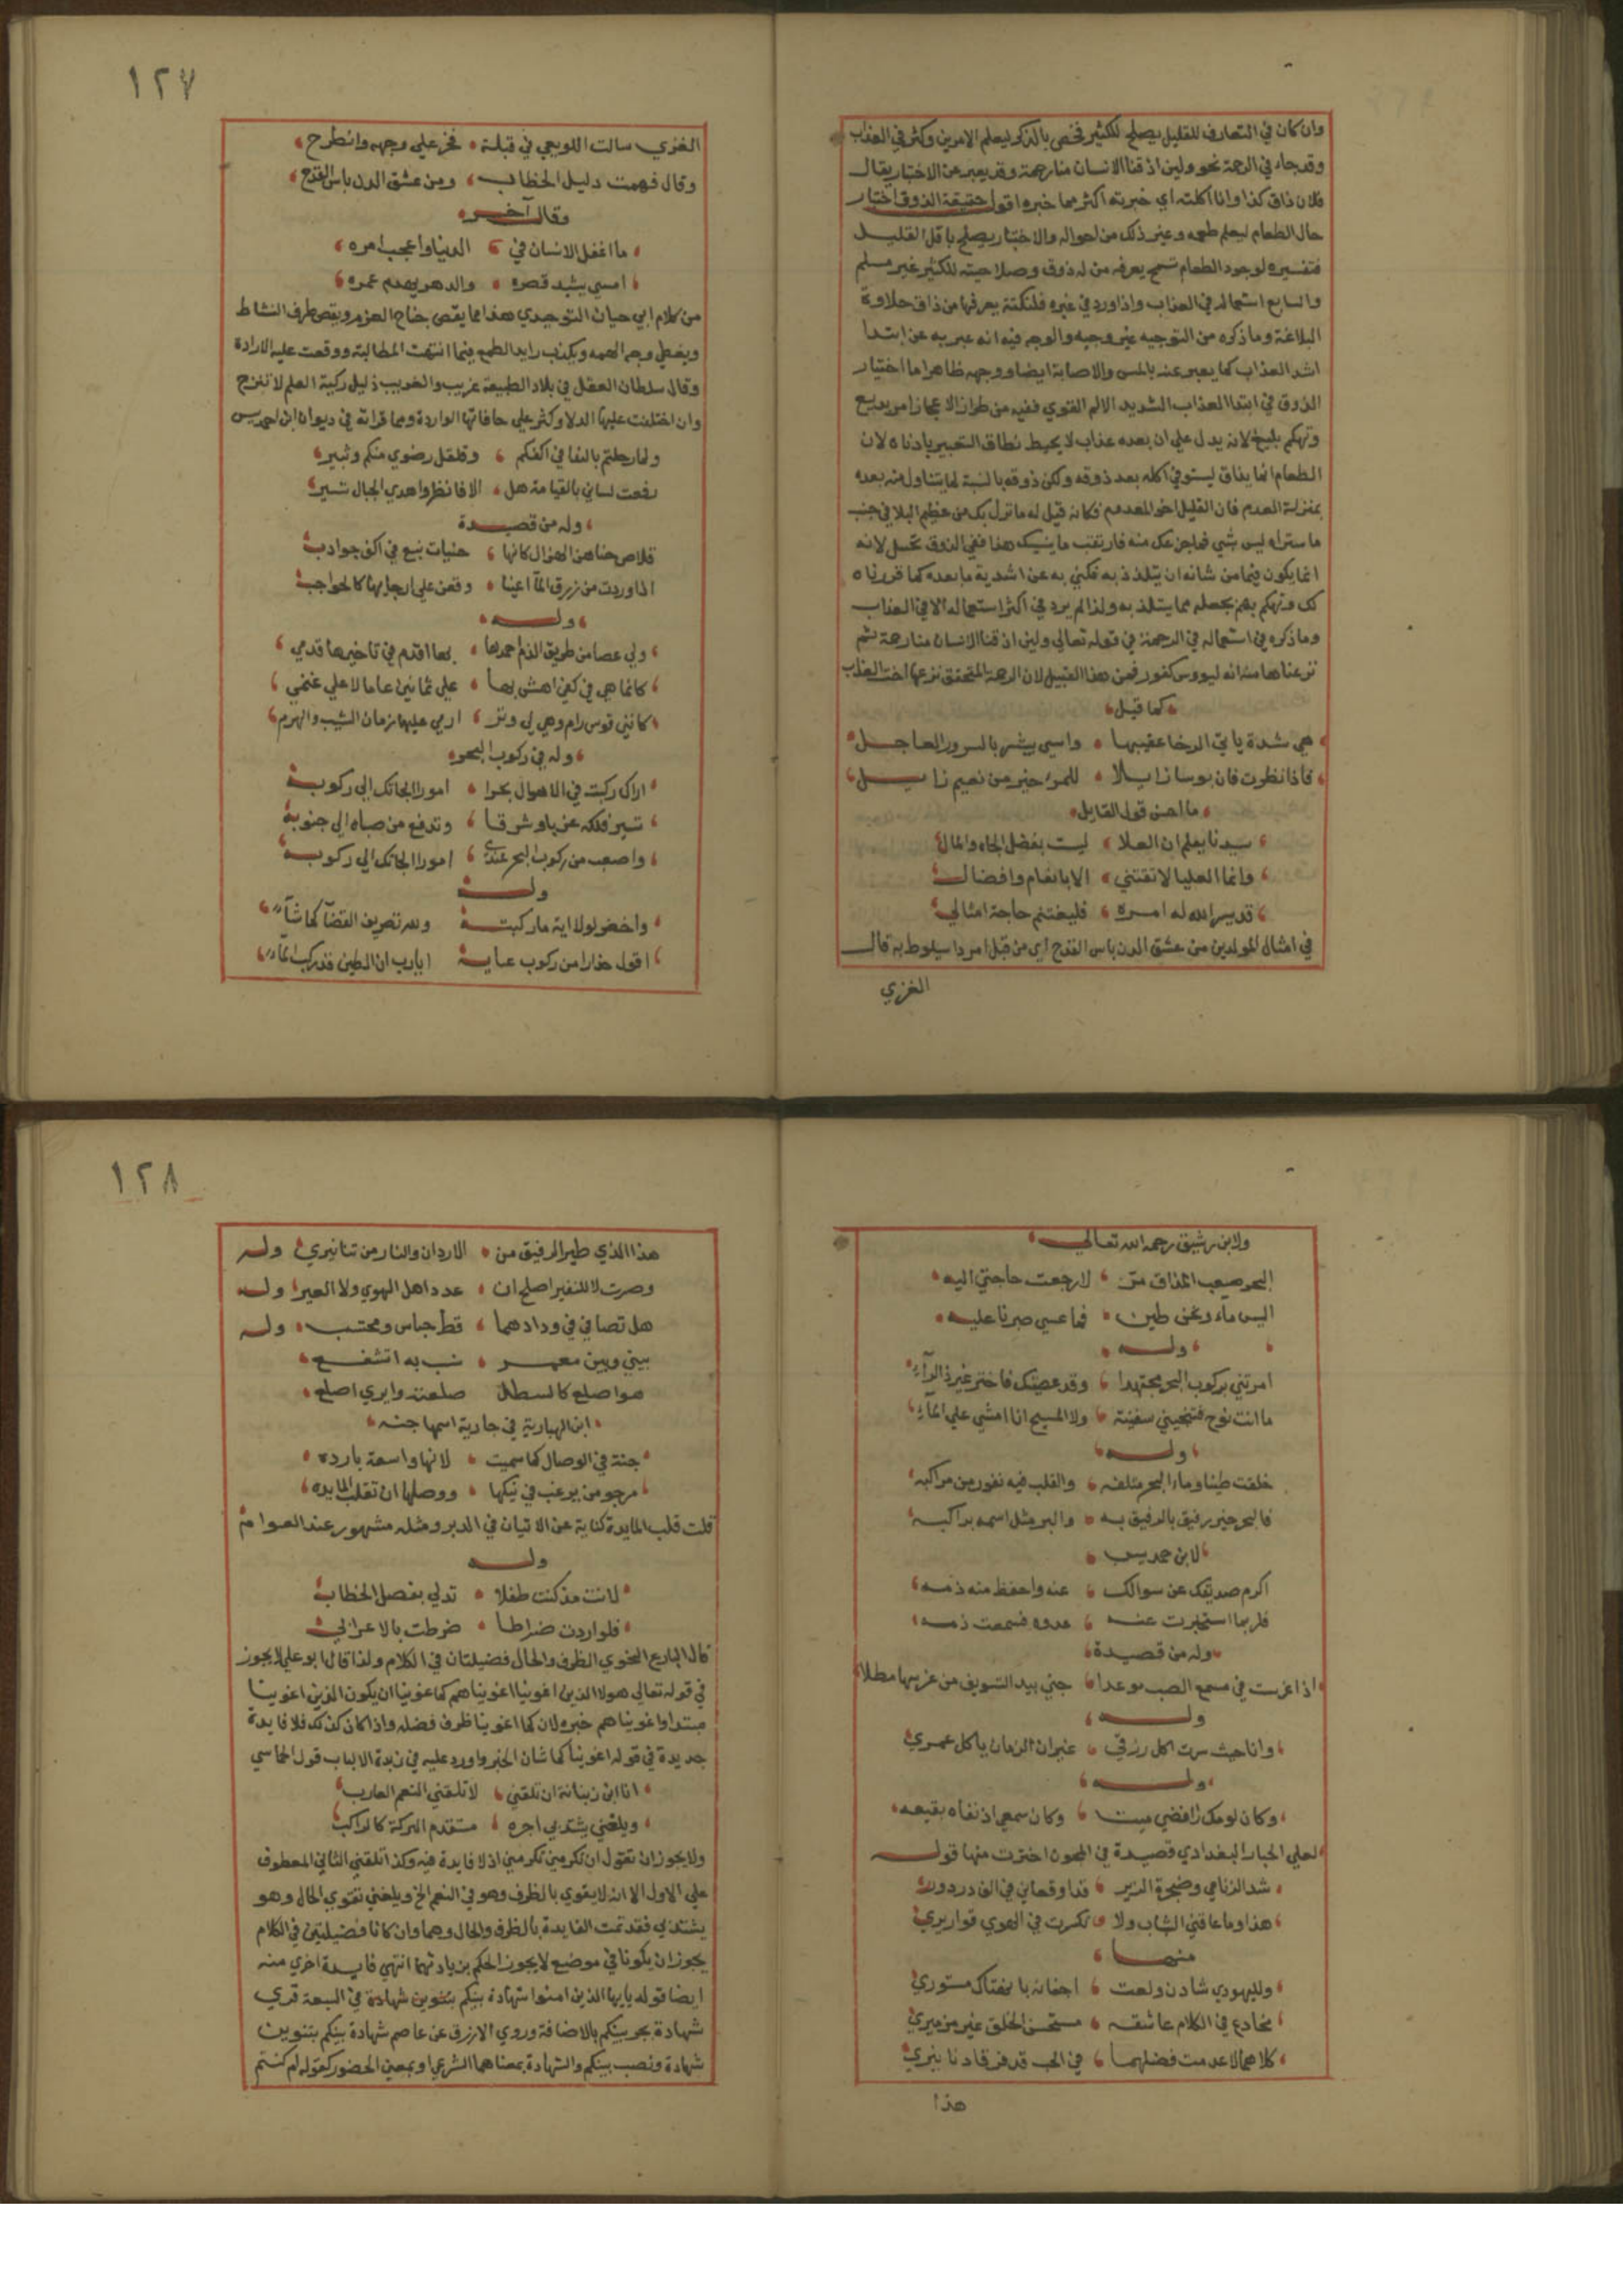 وان كان في التعارف للقليل يصلح للكثير فخص بالذكر ليعلم الامرين وكثر في العذاب
وقد جاء في الرحمة نحو ولين اذقنا الانسان منا رحمة وقد يعبر عن الاختبار يقال
فلان ذاق كذا وانا اكلته اي خبرته اكثر مما خبره اقول حقيقة الذوق اختبار
حال الطعام ليعلم طعمه وغير ذلك من احواله والاختبار يصلح باقل القليل
فتفسيره لوجود الطعام تسمح يعرفه من له ذوق وصلاحيته للكثير غير مسلم
والسابع استعماله في العذاب واذا ورد في غيره فلنكتة يعرفها من ذاق حلاوة
البلاغة وما ذكره من التوجيه غير وجيه والوجه فيه انه عبر به عن ابتدا
اشد العذاب كما يعبر عنه بالمس والاصابة ايضا ووجهه ظاهر اما اختيار
الذوق في ابتدا العذاب الشديد الالم القوي ففيه من طراز الاعجاز امر بديع
وتهكم بليغ لانه يدل علي ان بعده عذاب لا يحيط نطاق التعبير بادناه لان
الطعام انما يذاق ليستوفي اكله بعد ذوقه ولكن ذوقه بالنسبة لما يتناول منه بعده
بمنزلة العدم فان القليل اخو المعدوم فكانه قيل له ما نزل بك من عظيم البلا في جنب
ما ستراه ليس بشي فما جزعك منه فارتقب ما ينسيك هذا ففي الذوق تخيل لانه
انما يكون فيما من شانه ان يتلذذ به فكني به عن اشدية ما بعده كما قررناه
لك وتهكم بهم بجعله مما يتلذذ به ولذا لم يرد في اكثر استعماله الا في العذاب
وما ذكره في استعماله في الرحمة في قوله تعالي ولين اذقنا الانسان منا رحمة ثم
نزعناها منه انه ليووس كفور فمن هذا القبيل لان الرحمة المتحقق نزعها اخت العذاب
كما قيل
هي شدة ياتي الرخا عقيبها واسي يبشر بالسرور العاجل
فاذا نظرت فان بوسا زايلا للمرء خير من نعيم زايل
ما احسن قول القايل
سيدنا يعلم ان العلا ليست بفضل الجاه والمال
وانما العليا لا تقتني الا بانعام وافضال
قد يسر الله له امره فليغتنم حاجة امثالي
في امثال المولدين من عشق الدن باس القدح اي من قبل امردا سيلوط به قال
الغزي
١٢٧
الغزي سالت اللويحي في قبلة فخر علي وجهه وانطرح
وقال فهمت دليل الخطاب ومن عشق الدن باس القدح
وقال آخر
ما اغفل الانسان في الدنيا واعجب امره
امسي يشيد قصره والدهر يهدم عمره
من كلام ابي حيان التوحيدي هذا مما يقص جناح العزم ويغض طرف النشاط
ويغطي وجه الهمه ويكذب رايد الطمع فيما انتهت المطالبة ووقعت عليه الارادة
وقال سلطان العقل في بلاد الطبيعة غريب والغريب ذليل ركية العلم لا تنزح
وان اختلفت عليها الدلا وكثر علي حافاتها الواردة ومما قراته في ديوان ابن حمديس
ولما رحلتم بالندا في اكفكم وقلقل رضوي منكم وثبير
رفعت لساني بالقيامة هل الا فانظروا هذي الجبال تسير
وله من قصيدة
قلاص حناهن الهزال كانها حنيات نبع في اكف جواذب
اذا وردت من زرق الما اعينا وقفن علي ارجايها كالحواجب
وله
ولي عصا من طريق الذم احمدها بها اقدم في تاخيرها قدمي
كانما هي في كفي اهش بها علي ثمانين عاما لا علي غنمي
كانني قوس رام وهي لي وتر ارمي عليها زمان الشيب والهرم
وله في ركوب البحر
اراك ركبت في الاهوال بحرا امورا الجاتك الي ركوبه
تسير فلكه غربا وشرقا وتدفع من صباه الي جنوبه
واصعب من ركوب البحر عندي امورا الجاتك الي ركوبه
وله
واخضر لولا اية ما ركبته ولله تصريف القضآ كما شآء
اقول حذارا من ركوب عبابه ايا رب ان الطين قد ركب المآء
ولابن رشيق رحمه الله تعالي
البحر صعب المذاق مر لا رجعت حاجتي اليه
اليس ماء ونحن طين فما عسي صبرنا عليه
وله
امرتني بركوب البحر مجتهدا وقد عصيتك فاختر غير ذا الرآء
ما انت نوح فتنجيني سفينة ولا المسيح انا امشي علي المآء
وله
خلقت طينا وماء البحر متلفه والقلب فيه نفور من مراكبه
فالبحر خير رفيق بالرفيق به والبر مثل اسمه بر اكبه
لابن حمديس
اكرم صديقك عن سوالك عنه واحفظ منه ذمه
فلربما استخبرت عنه عدوه فسمعت ذمه
وله من قصيدة
اذا غرست في مسمع الصب موعدا جني بيد التسويف من غرسها مطلا
وله
وانا حيث سرت اكل رزقي غير ان الزمان ياكل عمري
وله
وكان لومك رافضي ميت وكان سمعي اذ نفاه بقيعه
لعلي الخباز البغدادي قصيدة في المجون اخترت منها قوله
شد الزنامي وضجة الزير قد اوقعاني في الف دردور
هذا وما عاقني الشباب ولا تكسرت في الهوي قواريري
منها
ولليهودي شادن ولعت اجفانه بانهتاك مستوري
مخادع في الكلام عاشقه مستحسن الخلق غير مزميري
كلاهما لا عدمت فضلهما في الحب قد مزقا دنانيري
هذا
١٢٨
هذا الذي طير الدقيق من الاردان والنار من تنانيري وله
وصرت لا للنفير اصلح ان عدد اهل الهوي ولا العير وله
هل تصافي في ودادهما قط جباس ومحتسب وله
بيني وبين معمر نسب به اتشفع
هو اصلع كالسطل صلعته وايري اصلع
ابن الهبارية في جارية اسمها جنه
جنة في الوصال كما سميت لانها واسعة بارده
مرجو من يرغب في نيكها ووصلها ان تقلب المايده
قلت قلب المايدة كناية عن الاتيان في الدبر ومثله مشهور عند العوام
وله
لانت مذ كنت طفلا تدلي بفصل الخطاب
فلو اردت ضراطا ضرطت بالاعراب
قال البارع النحوي الظرف والحال فضيلتان في الكلام ولذا قال ابو علي لا يجوز
في قوله تعالي هولا الذين اغوينا اغويناهم كما غوينا ان يكون الذين اغوينا
مبتدا واغويناهم خبره لان كما اغوينا ظرف فضله واذا كان كذلك فلا فايدة
جديدة في قوله اغوينا كما شان الخبر واورد عليه في زبدة الالباب قول الحماسي
انا ابن زيابة ان تلقني لا تلقني النعم العازب
ويلقني يشتد بي اجرد مستقدم البركة كالراكب
ولا يجوز ان تقول ان تكرمني تكرمني اذ لا فايدة فيه وكذا تلقني الثاني المعطوف
علي الاول الا انه لا يقوي بالظرف وهو في النعم الخ ويلقني تقوي الحال وهو
يشتد بي فقد تمت الفايدة بالظرف والحال وهما وان كانا فضيلتين في الكلام
يجوز ان يكونا في موضع لا يجوز الحكم بزيادتهما انتهي فايدة اخري منه
ايضا قوله يايها الذين امنوا شهادة بينكم بتنوين شهادة في السبعة قري
شهادة بجر بينكم بالاضافة وروي الازرق عن عاصم شهادة بينكم بتنوين
شهادة ونصب بينكم والشهادة بمعناها الشرعي او بمعني الحضور كقوله ام كنتم